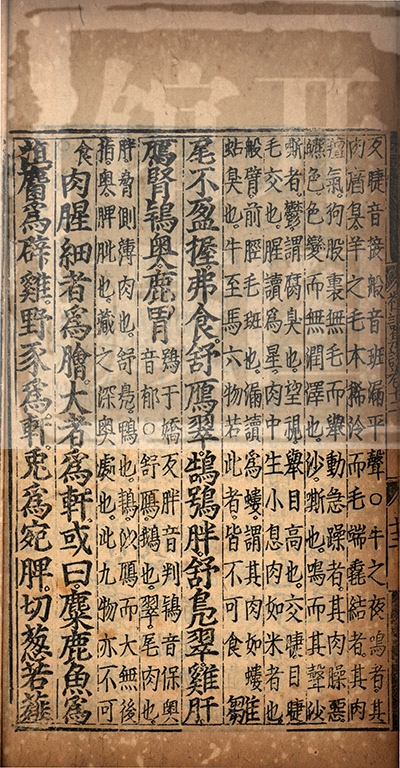 反睫音接般音班漏平聲○牛之夜鳴者其
肉庮臭羊之毛本稀泠而毛端毳結者其肉
羶氣狗股裏無毛而舉動急躁者其肉臊惡
皫色色變而無潤澤也沙嘶也鳴而其聲沙
嘶者鬱謂腐臭也望視舉目高也交睫目睫
毛交也腥讀爲星肉中生小息肉如米者也
般臂前脛毛班也漏讀爲螻謂其肉如螻
蛄臭也牛至馬六物若此者皆不可食
雛
尾不盈握弗食舒鴈翠鵠鴞胖舒鳧翠雞肝
鴈腎鴇奥鹿胃
鴞于嬌反胖音判鴇音保奥
音郁○舒鴈鵝也翠尾肉也
胖脅側薄肉也舒鳧鴨也鴇似鴈而大無後
指奥脾肶也藏之深奥處也此九物亦不可
食
肉腥細者爲膾大者爲軒或曰麋鹿魚爲
菹麕爲辟雞野豕爲軒兎爲宛脾切葱若薤